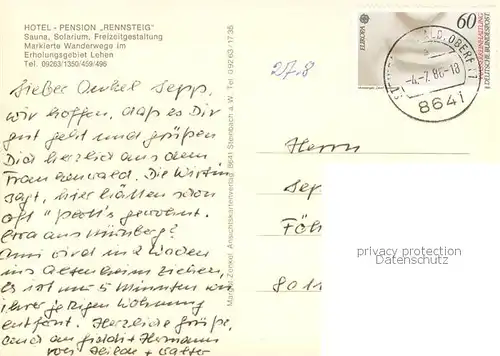 HOTEL - PENSION „RENNSTEIG"
Sauna, Solarium, Freizeitgestaltung
Markierte Wanderwege im
Erholungsgebiet Lehen
Tel. 09263/1350/459/496
Lieber Onkel Sepp,
wir hoffen, daß es Dir
gut geht und grüßen
Dich herzlich aus dem
Frankenwald. Die Wirtin
sagt, hier hätten schon
oft
gewohnt.
etwa aus Nürnberg?
wird in 2 Wochen
ins Altersheim ziehen,
Es ist nur 5 Minuten von
ihrer jetzigen Wohnung
entfernt. Herzliche Grüße,
auch an + Hermann
von Hilde + Walter
Ansichtskartenverlag 8641 Steinbach a. W. Tel. 09263/1735
27.8
EUROPA
60
DEUTSCHE BUNDESPOST
-4.7.86-18
8641
Herrn
Sep
Föh
801
privacy protection
Datenschutz